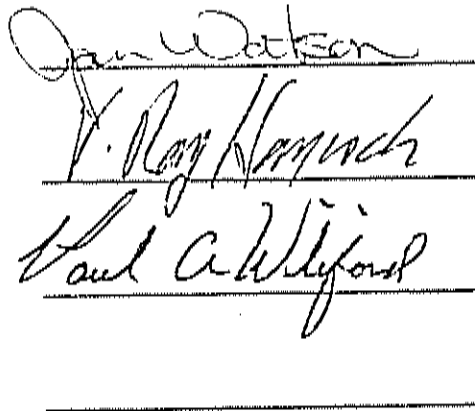 Jan Watson
V. Ray Haycock
Paul A Wiliford